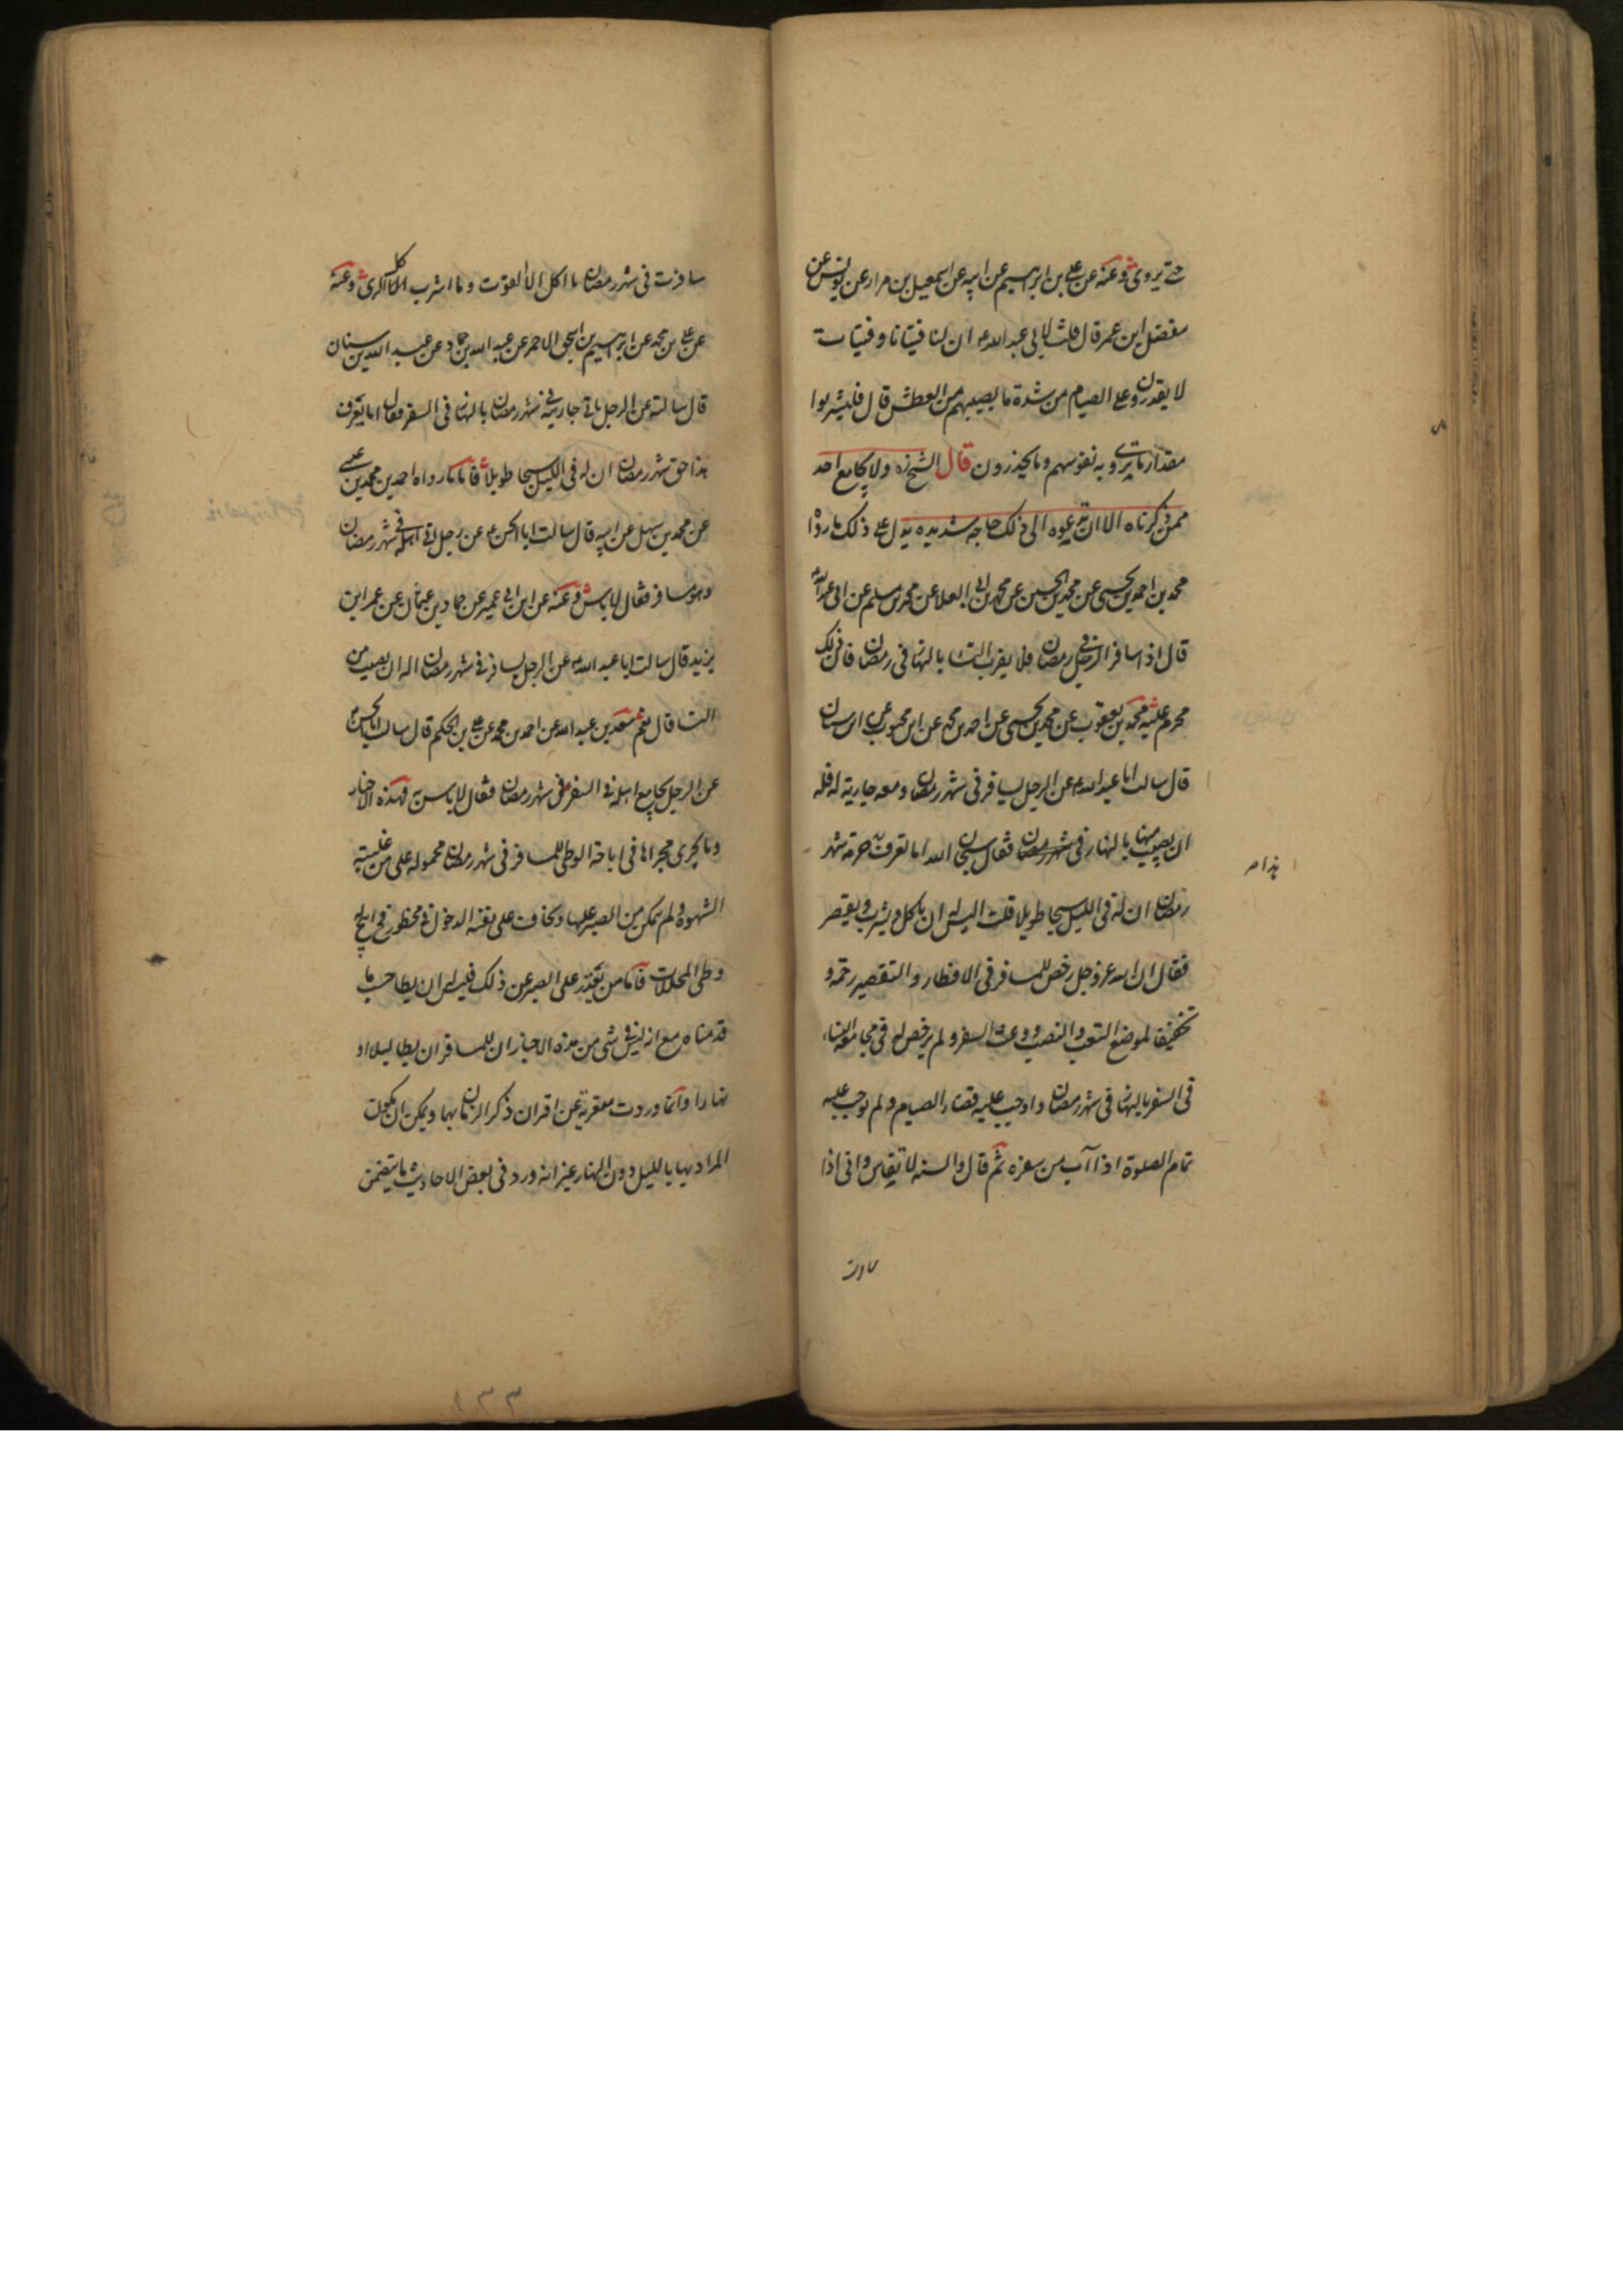 حتى يروى وعنه عن على بن ابرهيم عن ابيه عن اسمعيل بن مرار عن يونس عن
مفضل ابن عمر قال قلت لابى عبد الله ع ان لنا فتيانا و فتيات
لا يقدرون على الصيام من شدة ما يصيبهم من العطش قال فليشربوا
مقدار ما يروى به نفوسهم وما يحذرون قال الشيخ ره ولا يجامع احد
ممن ذكرناه الا ان تدعوه الى ذلك حاجه شديده يدل على ذلك ما رواه
محمد بن احمد بن يحيى عن محمد بن الحسين عن محمد بن ابى العلا عن محمد بن مسلم عن ابى عبد الله
قال اذا سافر الرجل فى رمضان فلا يقرب النسا بالنهار فى رمضان فان ذلك
محرم عليه محمد بن يعقوب عن محمد بن يحيى عن احمد بن محمد عن ابن محبوب عن ابن سنان
قال سالت ابا عبد الله ع عن الرجل يسافر فى شهر رمضان ومعه جارية له فله
ان يصيب منها بالنهار فى شهر رمضان فقال سبحان الله اما تعرف حرمة شهر
هذا م
رمضان ان له فى الليل سبحا طويلا قلت اليس له ان ياكل ويشرب ويقصر
فقال ان الله عز وجل رخص للمسافر فى الافطار والتقصير رحمة و
تخفيفا لموضع التعب والنصب ووعث السفر ولم يرخص له فى مجامعة النساء
فى السفر بالنهار فى شهر رمضان واوجب عليه قضاء الصيام ولم يوجب عليه
تمام الصلوة اذا آب من سفره ثم قال والسنه لا تقاس وانى اذا
سافرت
سافرت فى شهر رمضان ما اكل الا القوت وما اشرب كل الرى وعنه
عن على بن محمد عن ابرهيم بن اسحق الاحمر عن عبد الله بن حماد عن عبد الله بن سنان
قال سالته عن الرجل ياتى جاريته فى شهر رمضان بالنهار فى السفر فقال اما يعرف
هذا حق شهر رمضان ان له فى الليل سبحا طويلا فاما ما رواه احمد بن محمد بن عيسى
عن محمد بن سهل عن ابيه قال سالت ابا الحسن ع عن رجل اتى اهله فى شهر رمضان
وهو مسافر فقال لا باس وعنه عن ابن ابى عمير عن حماد بن عثمان عن عمر ابن
يزيد قال سالت ابا عبد الله ع عن الرجل يسافر فى شهر رمضان اله ان يصيب من
النسا قال نعم سعد بن عبد الله عن احمد بن محمد عن على بن الحكم قال سالت ابا الحسن ع
عن الرجل يجامع اهله فى السفر فى شهر رمضان فقال لا باس به فهذه الاخبار
وما يجرى مجراها فى اباحة الوطى للمسافر فى شهر رمضان محموله على من غلبته
الشهوة ولم يتمكن من الصبر عليها ويخاف على نفسه الدخول فى محظور فح ابيح له
وطى المحللات فاما من يقدر على الصبر عن ذلك فليس له ان يطا حسب ما
قدمناه مع انه ليس فى شى من هذه الاخبار ان للمسافر ان يطا ليلا او
نهارا وانما وردت معرية عن اقران ذكر الزمان بها ويمكن ان يكون
المراد بها بالليل دون النهار غير انه ورد فى بعض الاحاديث ما يتضمن
١٣٣